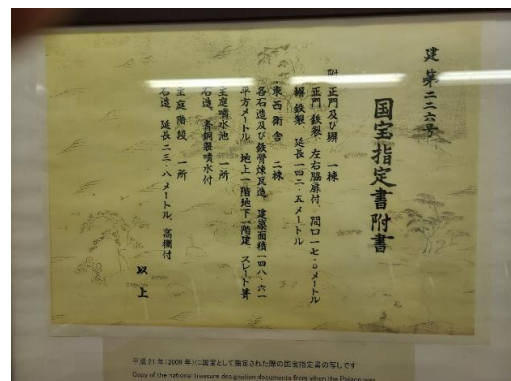 建第二二六号
国宝指定書附書
附 正門及び塀 一棟
正門 鉄製、左右脇扉付、間口一七・〇メートル
塀 鉄製、延長一四二・五メートル
東西衛舎 二棟
各石造及び鉄骨煉瓦造、建築面積一四八・六一
平方メートル、地上一階地下一階建、スレート葺
主庭噴水池 一所
石造、青銅製噴水付
主庭階段 一所
石造、延長二三・八メートル、高欄付
以上
平成 21 年(2009 年)に国宝として指定された際の国宝指定書の写しです
Copy of the national treasure designation documents from when the Palace was